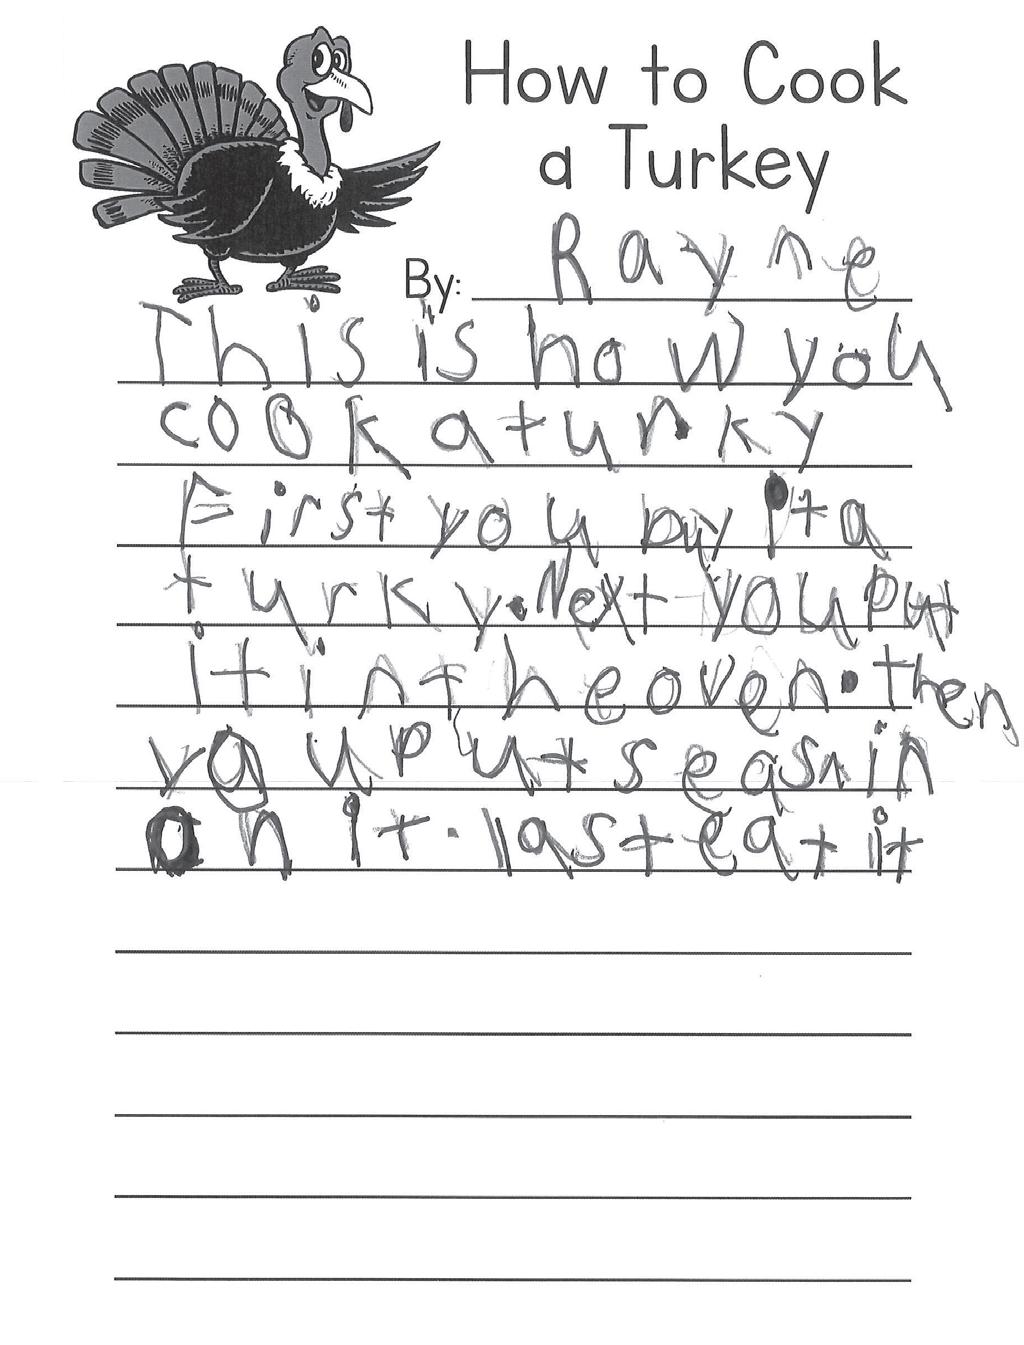 How to Cook
a Turkey
By: Rayne
This is how you
cook a turky
First you buy it a
turky. Next you put
it in the oven. then
you put seasnin
on it. last eat it